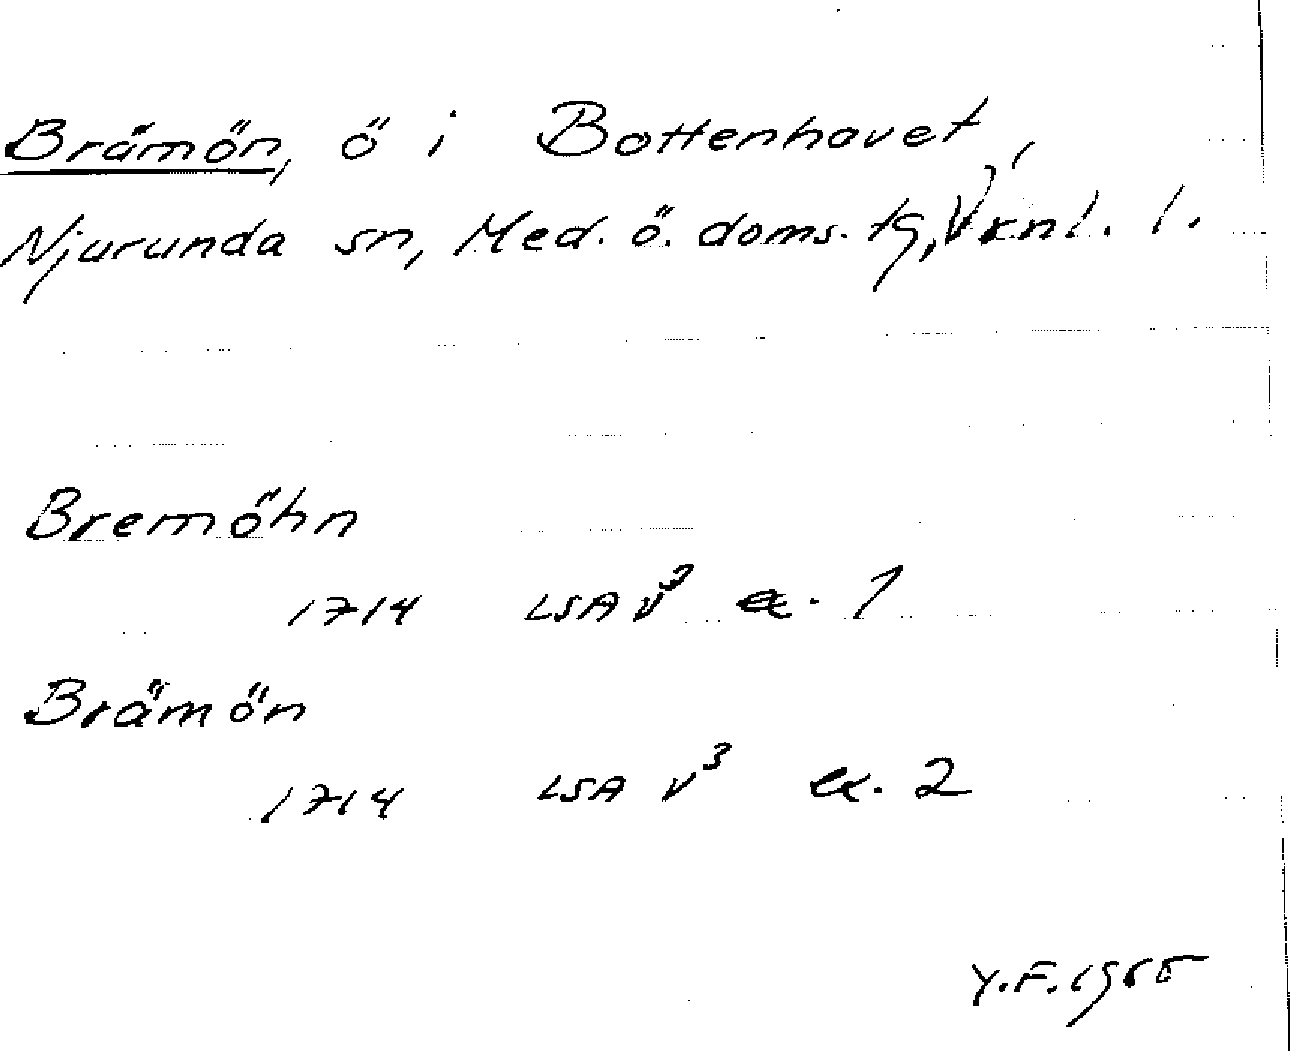 Brämön, ö i Bottenhavet,
Njurunda sn, Med. ö. doms. tg, Vknl. l.
Bremöhn
1714 LSA V³ ex. 1
Brämön
1714 LSA V³ ex. 2
Y.F. 1965